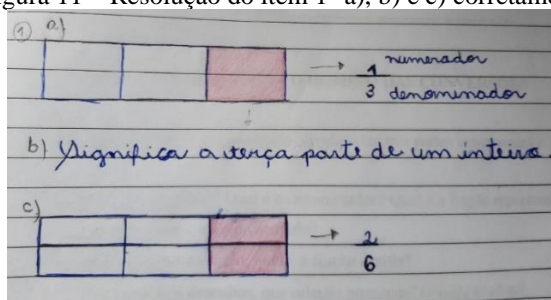 Figura 11 – Resolução do item 1 a), b) e c) corretamente
① a)
→ 1 numerador
3 denominador
b) Significa a terça parte de um inteiro.
c)
→ 2
6